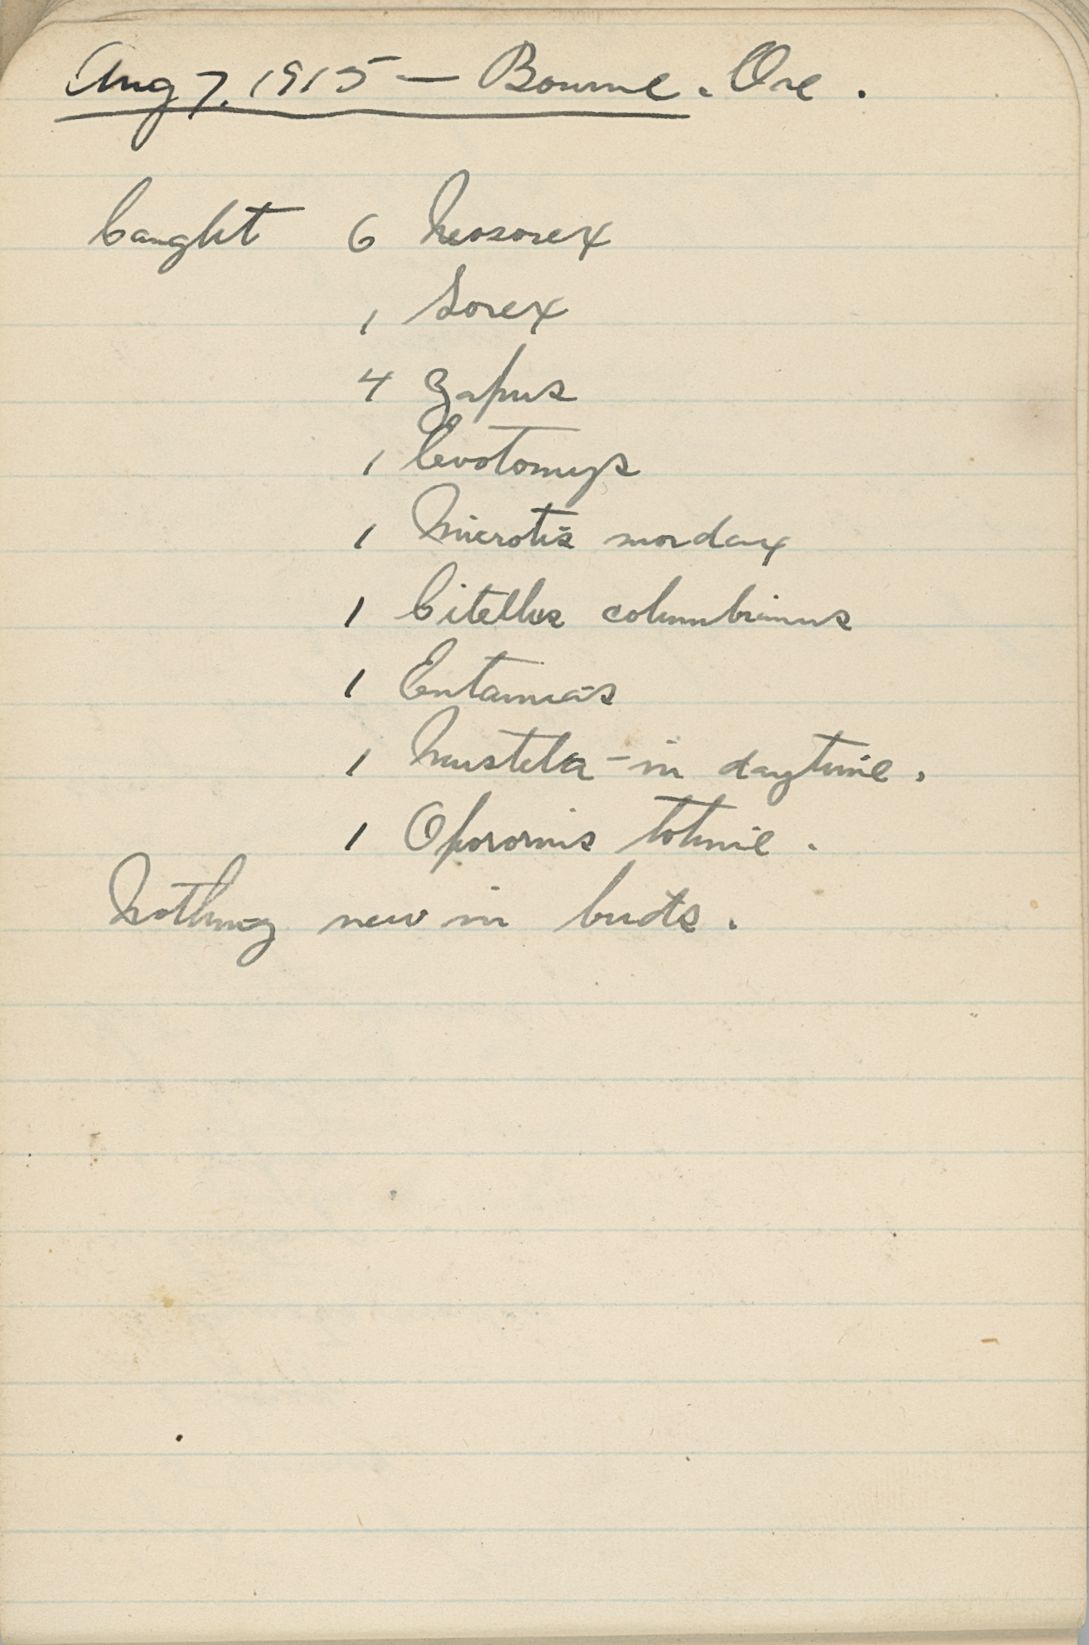 Aug 7, 1915 — Bourne. Ore.
Caught 6 Neosorex
1 Sorex
4 Zapus
1 Evotomys
1 Microtis mordax
1 Citellus columbianus
1 Eutamias
1 Mustela - in daytime.
1 Oporornis tolmie.
Nothing new in birds.